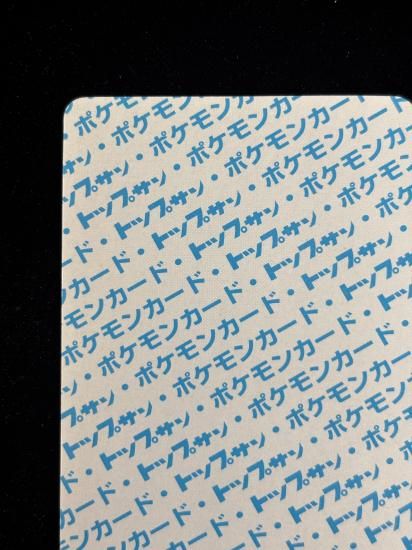 ・ポケモン
サン・ポケモンカード
トップサン・ポケモンカード
・トップサン・ポケモンカード
ード・トップサン・ポケモンカード
カード・トップサン・ポケモン
モンカード・トップサン・ポケ
ポケモンカード・トップサン・
・ポケモンカード・トップサン
サン・ポケモンカード・トップ
トップサン・ポケモンカード・
ド・トップサン・ポケモンカード
カード・トップサン・ポケモン
モンカード・トップサン・ポケ